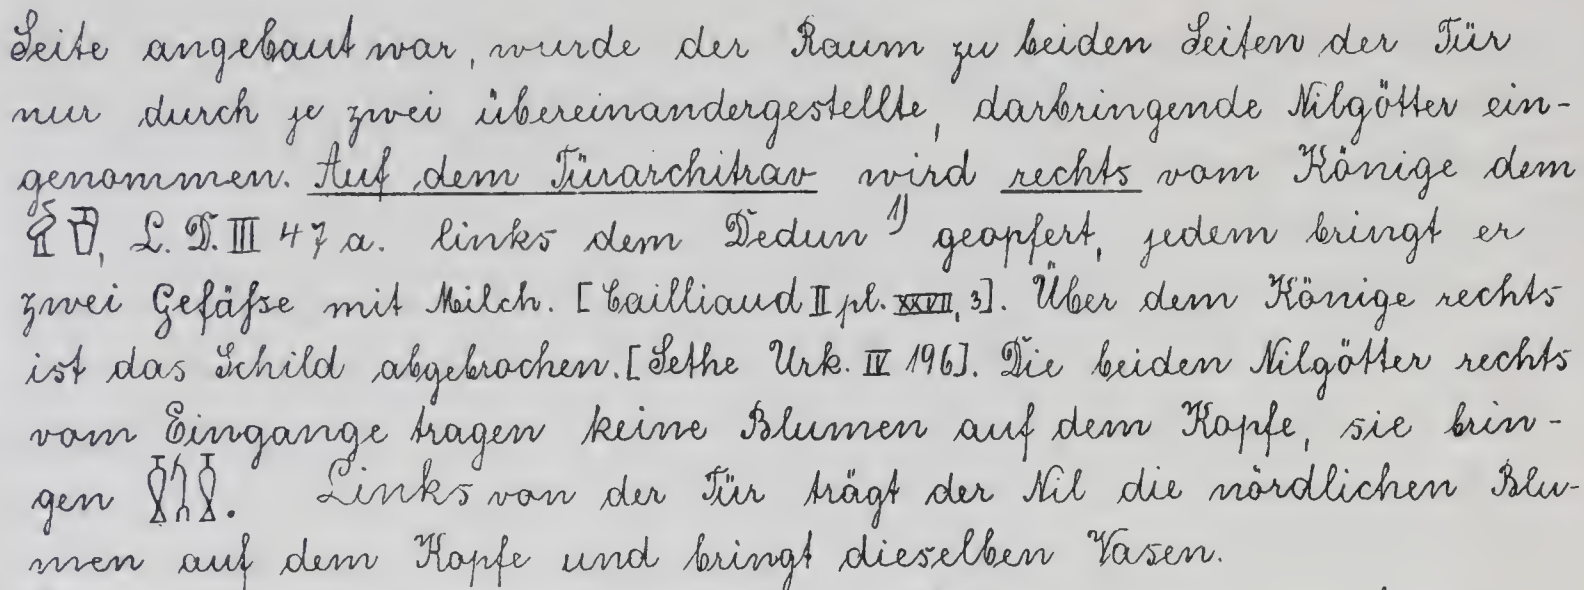 Seite angebaut war, wurde der Raum zu beiden Seiten der Tür
nur durch je zwei übereinandergestellte, darbringende Nilgötter ein-
genommen. Auf dem Türarchitrav wird rechts vom Könige dem
, L. D. III 47 a. links dem Dedun 1) geopfert, jedem bringt er
zwei Gefäße mit Milch. [Cailliaud II pl. XXVII, 3]. Über dem Könige rechts
ist das Schild abgebrochen. [Sethe Urk. IV 196]. Die beiden Nilgötter rechts
vom Eingange tragen keine Blumen auf dem Kopfe, sie brin-
gen . Links von der Tür trägt der Nil die nördlichen Blu-
men auf dem Kopfe und bringt dieselben Vasen.